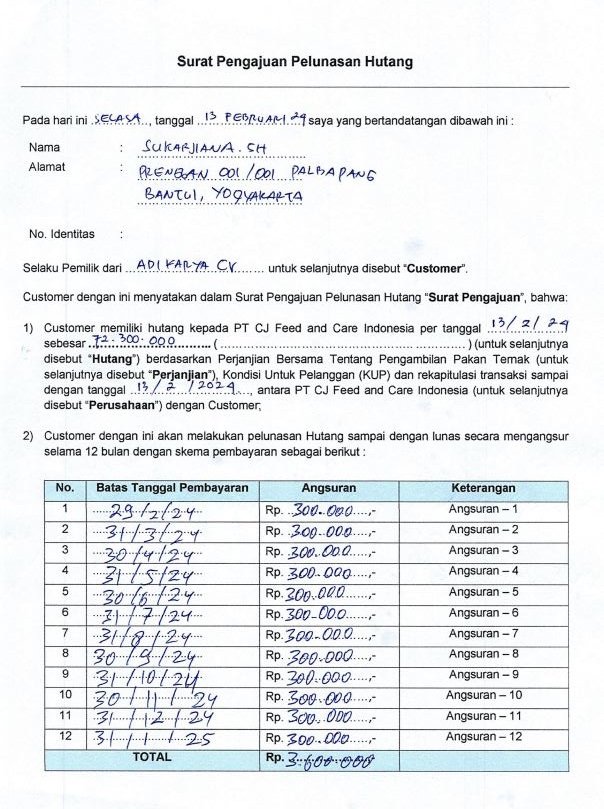 Surat Pengajuan Pelunasan Hutang
Pada hari ini SELASA, tanggal 13 FEBRUARI 24 saya yang bertandatangan dibawah ini :
Nama : SUKARJIANA. SH
Alamat : PRENGAN 001/001 PALBAPANG
BANTUL, YOGYAKARTA
No. Identitas :
Selaku Pemilik dari ADI KARYA CV untuk selanjutnya disebut “Customer”.
Customer dengan ini menyatakan dalam Surat Pengajuan Pelunasan Hutang “Surat Pengajuan”, bahwa:
1) Customer memiliki hutang kepada PT CJ Feed and Care Indonesia per tanggal 13/2/24
sebesar 72.300.000 ( ) (untuk selanjutnya
disebut “Hutang”) berdasarkan Perjanjian Bersama Tentang Pengambilan Pakan Ternak (untuk
selanjutnya disebut “Perjanjian”), Kondisi Untuk Pelanggan (KUP) dan rekapitulasi transaksi sampai
dengan tanggal 13/2/2024, antara PT CJ Feed and Care Indonesia (untuk selanjutnya
disebut “Perusahaan”) dengan Customer;
2) Customer dengan ini akan melakukan pelunasan Hutang sampai dengan lunas secara mengangsur
selama 12 bulan dengan skema pembayaran sebagai berikut :
No. Batas Tanggal Pembayaran Angsuran Keterangan
1 29/2/24 Rp. 300.000,- Angsuran – 1
2 31/3/24 Rp. 300.000,- Angsuran – 2
3 30/4/24 Rp. 300.000,- Angsuran – 3
4 31/5/24 Rp. 300.000,- Angsuran – 4
5 30/6/24 Rp. 300.000,- Angsuran – 5
6 31/7/24 Rp. 300.000,- Angsuran – 6
7 31/8/24 Rp. 300.000,- Angsuran – 7
8 30/9/24 Rp. 300.000,- Angsuran – 8
9 31/10/24 Rp. 300.000,- Angsuran – 9
10 30/11/24 Rp. 300.000,- Angsuran – 10
11 31/12/24 Rp. 300.000,- Angsuran – 11
12 31/1/25 Rp. 300.000,- Angsuran – 12
TOTAL Rp. 3.600.000